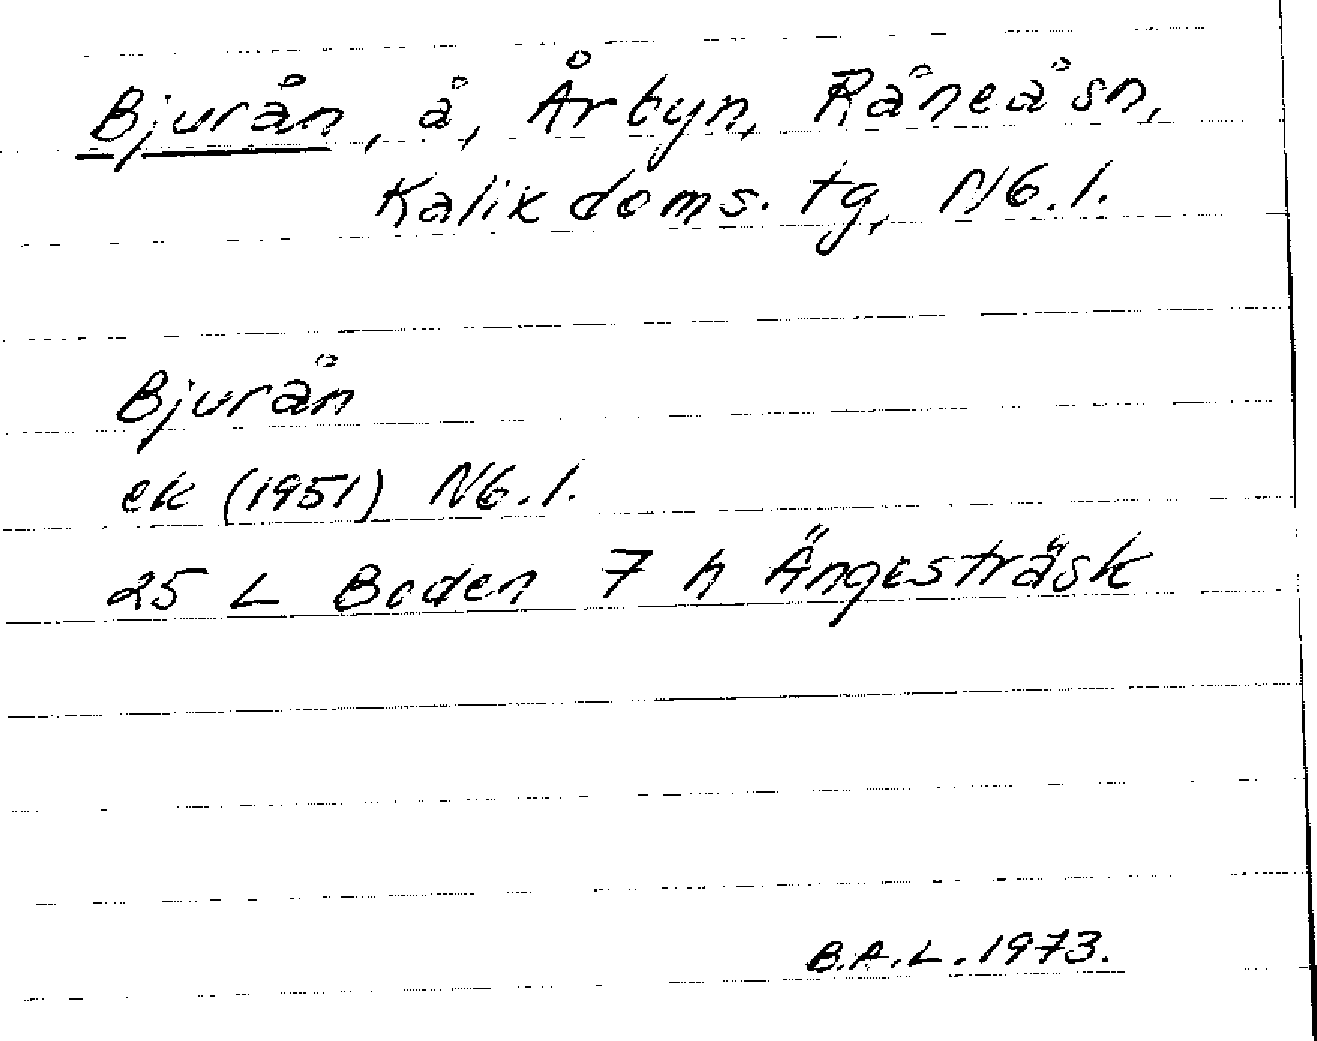 Bjurån, å, Årbyn, Råneå sn,
Kalix doms. tg, N6.l.
Bjurån
ek (1951) N6.l.
25 L Boden 7 h Ängesträsk
B.A.L. 1973.